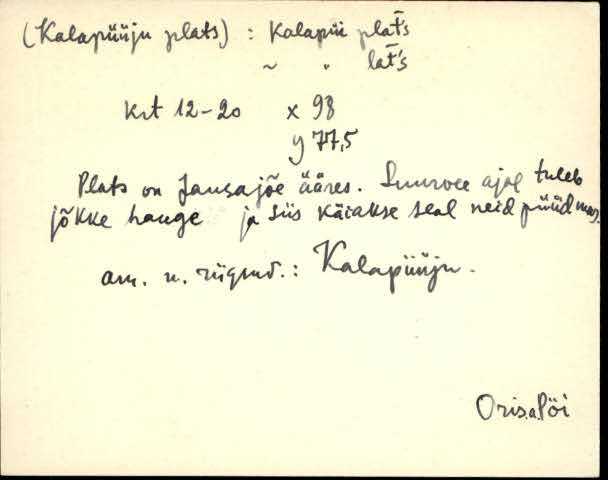 (Kalapüüju plats) : Kalapüi plat̄s
~ " lat̄'s
krt 12-20 x 98
y 77,5
Plats on Jausa jõe ääres. Suurvee ajal tuleb
jõkke hauge ja siis käiakse seal neid püüdmas.
am. n. : Kalapüüju.
Oris.a. Pöi